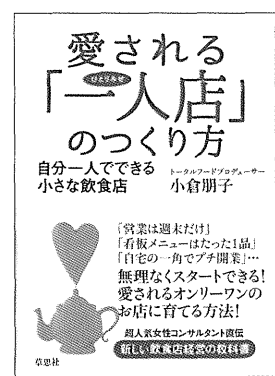 愛される
ひとりみせ
「一人店」
のつくり方
自分一人でできる
小さな飲食店
トータルフードプロデューサー
小倉朋子
「営業は週末だけ」
「看板メニューはたった1品」
「自宅の一角でプチ開業」…
無理なくスタートできる!
愛されるオンリーワンの
お店に育てる方法!
超人気女性コンサルタント直伝
新しい飲食店経営の教科書
草思社